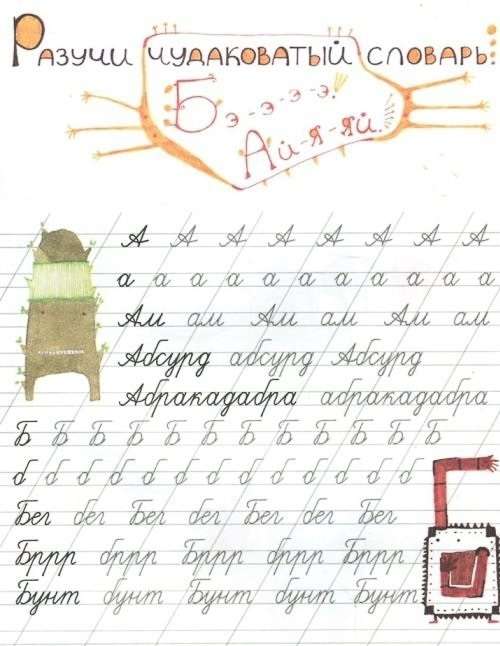 Разучи чудаковатый словарь:
Бэ-э-э-э!
Ай-я-яй.
А А А А А А А А
а а а а а а а а а а а
Ам ам Ам ам Ам ам
Абсурд абсурд Абсурд
Абракадабра абракадабра
Б Б Б Б Б Б Б Б Б Б Б Б
б б б б б б б б б б б б б
Бег бег Бег бег Бег бег Бег
Бррр бррр Бррр бррр Бррр
Бунт бунт Бунт бунт Бунт